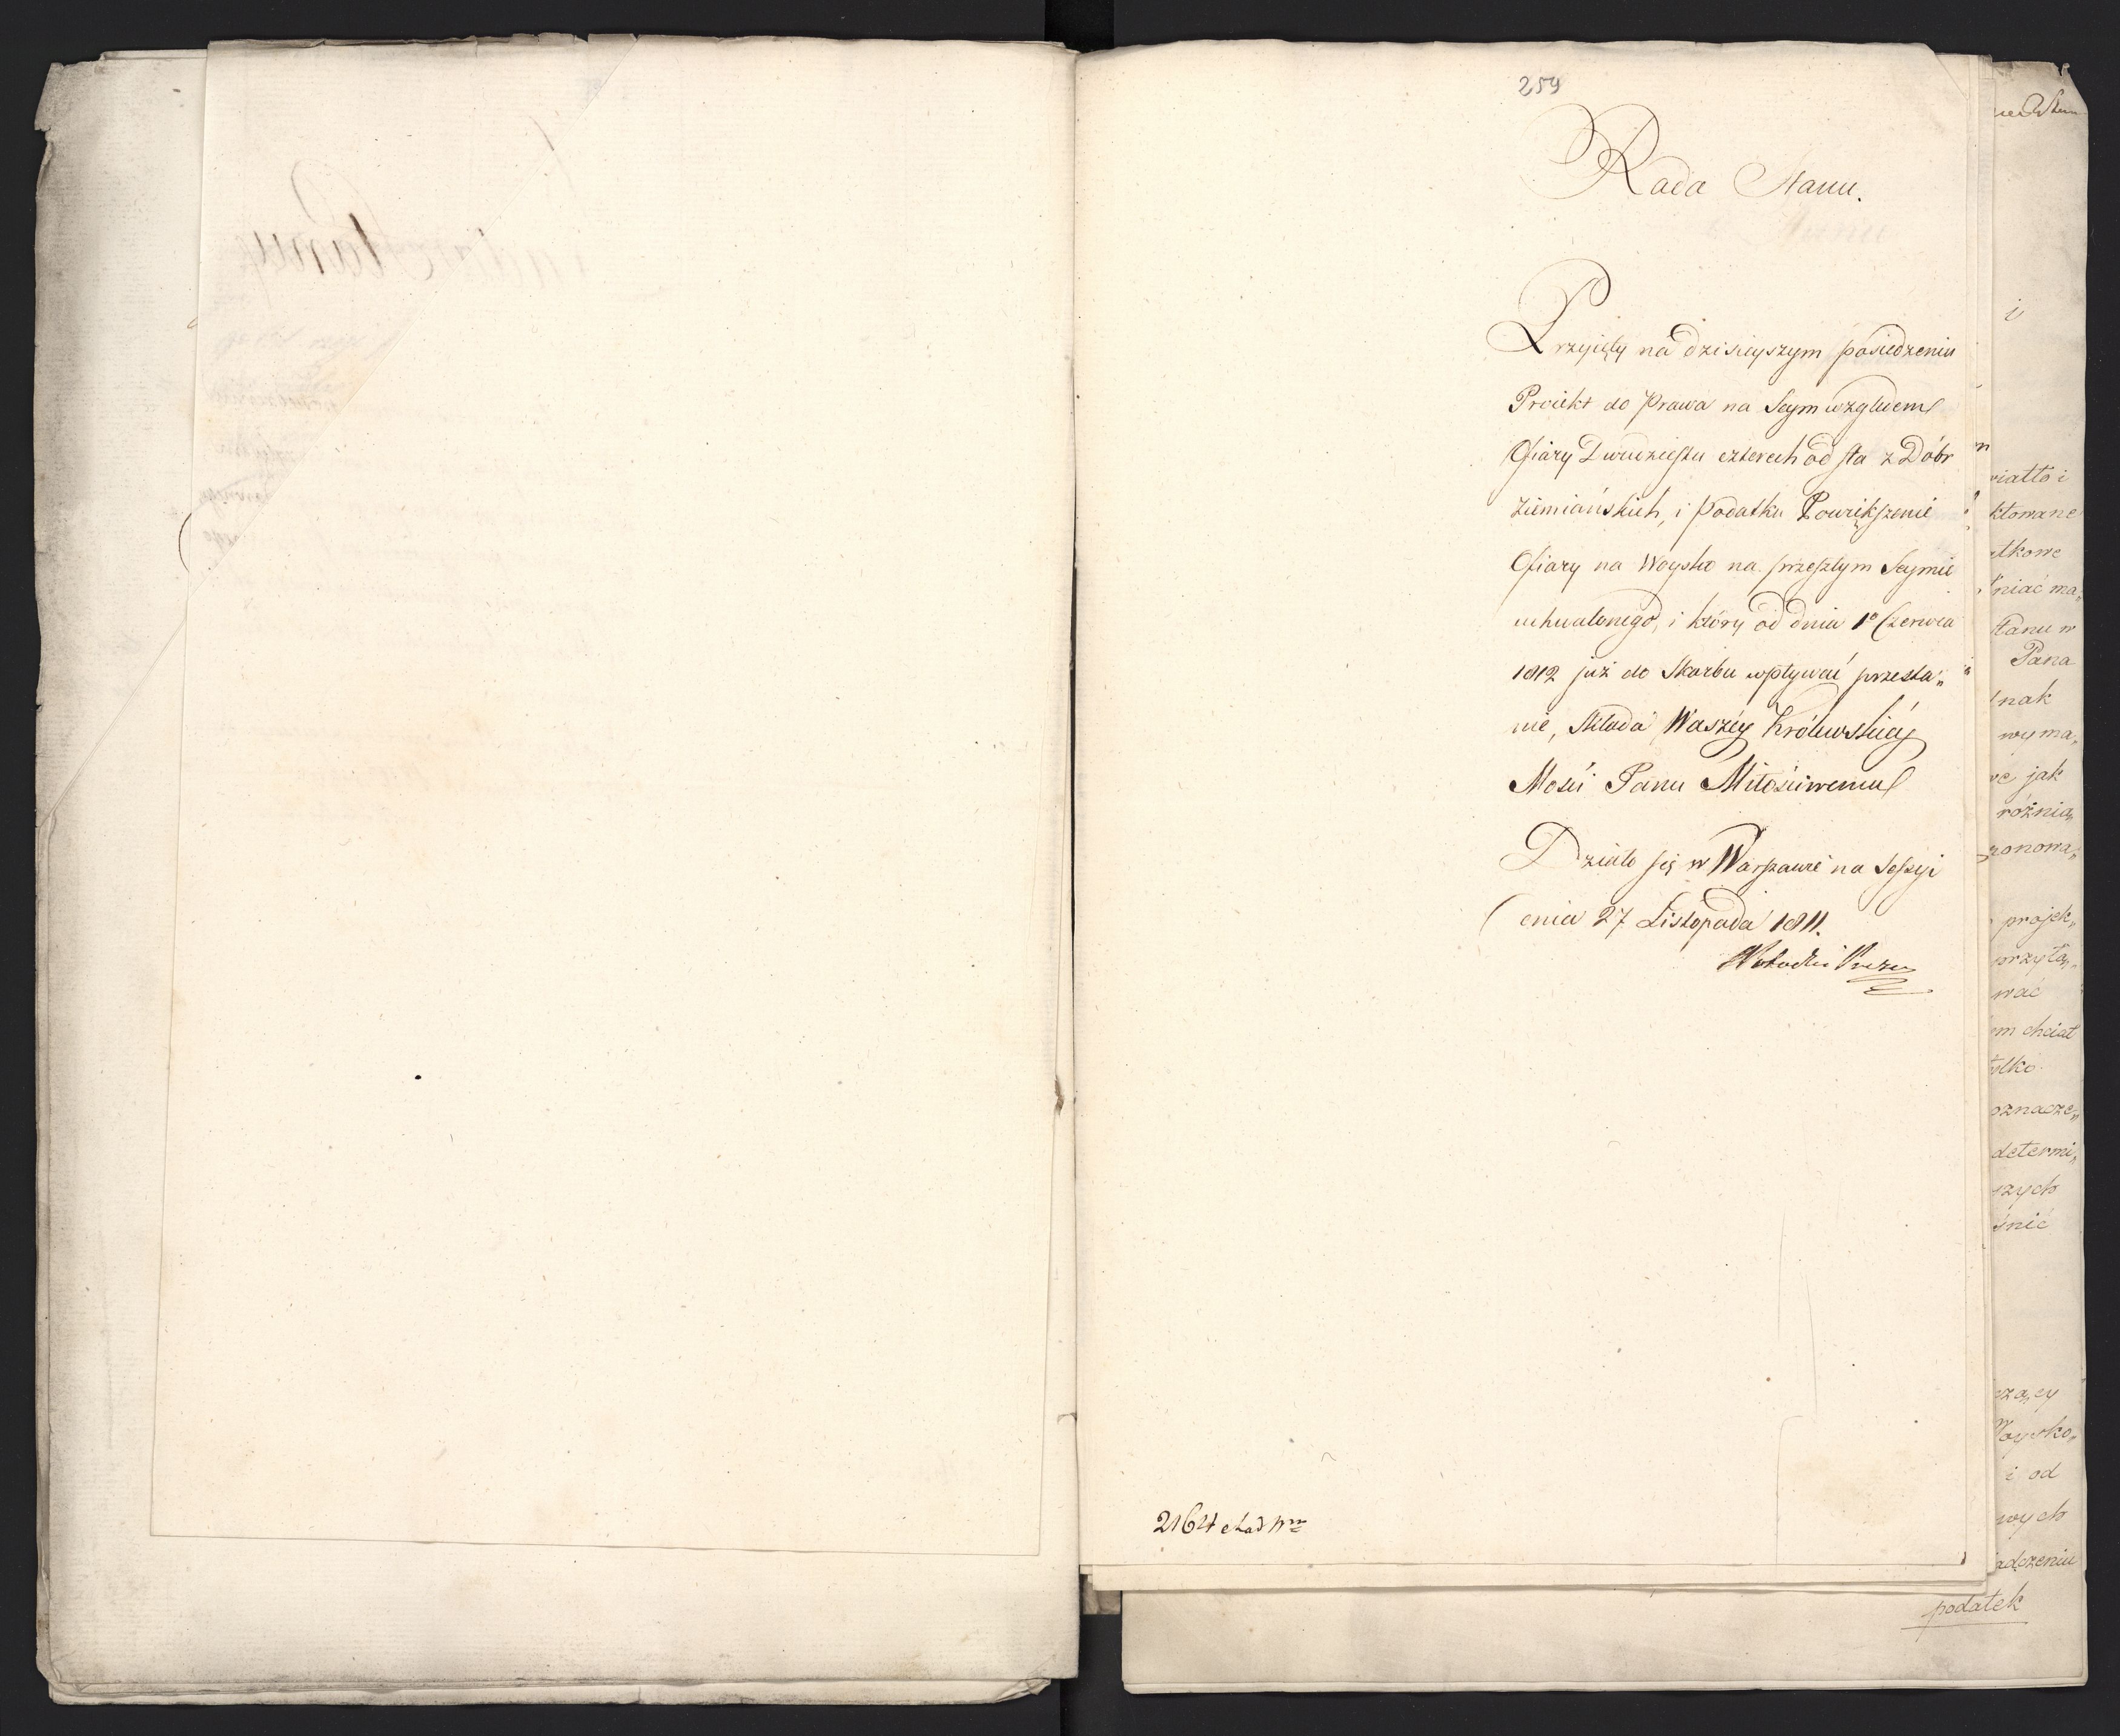 259
Rada Stanu.
Przyięty na dzisieyszym posiedzeniu
Proiekt do Prawa na Seym względem
Ofiary Dwudziestu czterech od sta z Dóbr
Ziemiańskich, i Podatku Powiększenie
Ofiary na Woysko na przeszłym Seymie
uchwalonego, i który od dnia 1º Czerwca
1812 już do Skarbu wpływać przesta„
nie, Składa Waszéy Królewskiéy
Mości Panu Miłościwemu
Działo się w Warszawie na Sessyi
dnia 27 Listopada 1811.
2164
i
wiatło i
ktowane
atkowe
niać ma„
stanu w
Pana
nak
wyma„
jak
różnią„
zonowa„
projek„
przyłą„
wać
em chciał
tylko
oznacze„
determi„
szych
śnić
czą,cy
Woysko„
i od
wych
adczeniu
podatek